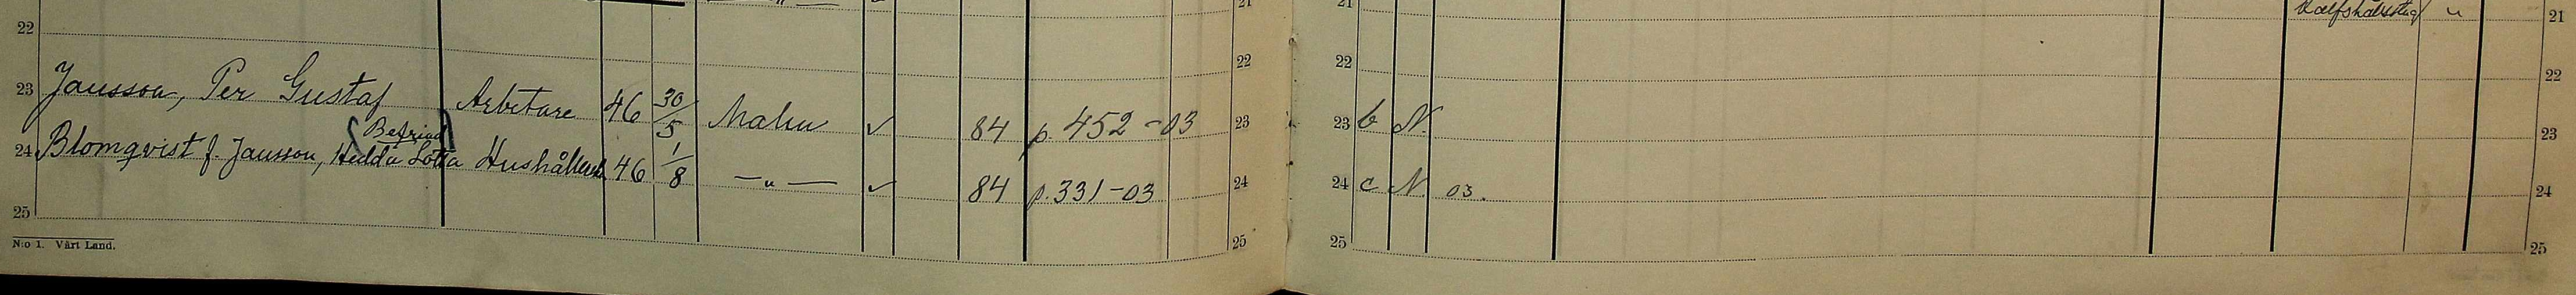 21 21 Kalfshälsstug " 21
22 22 22 22
23 Jansson, Per Gustaf Arbetare 46 30/5 Malm ✓ 84 p. 452-03 23 23 b N. 23
(Befriad)
24 Blomqvist f. Jansson, Hedda Lotta Hushåll 46 1/8 —"— ✓ 84 p. 331-03 24 24 c N. 03. 24
25 25 25 25
N:o 1. Vårt Land.